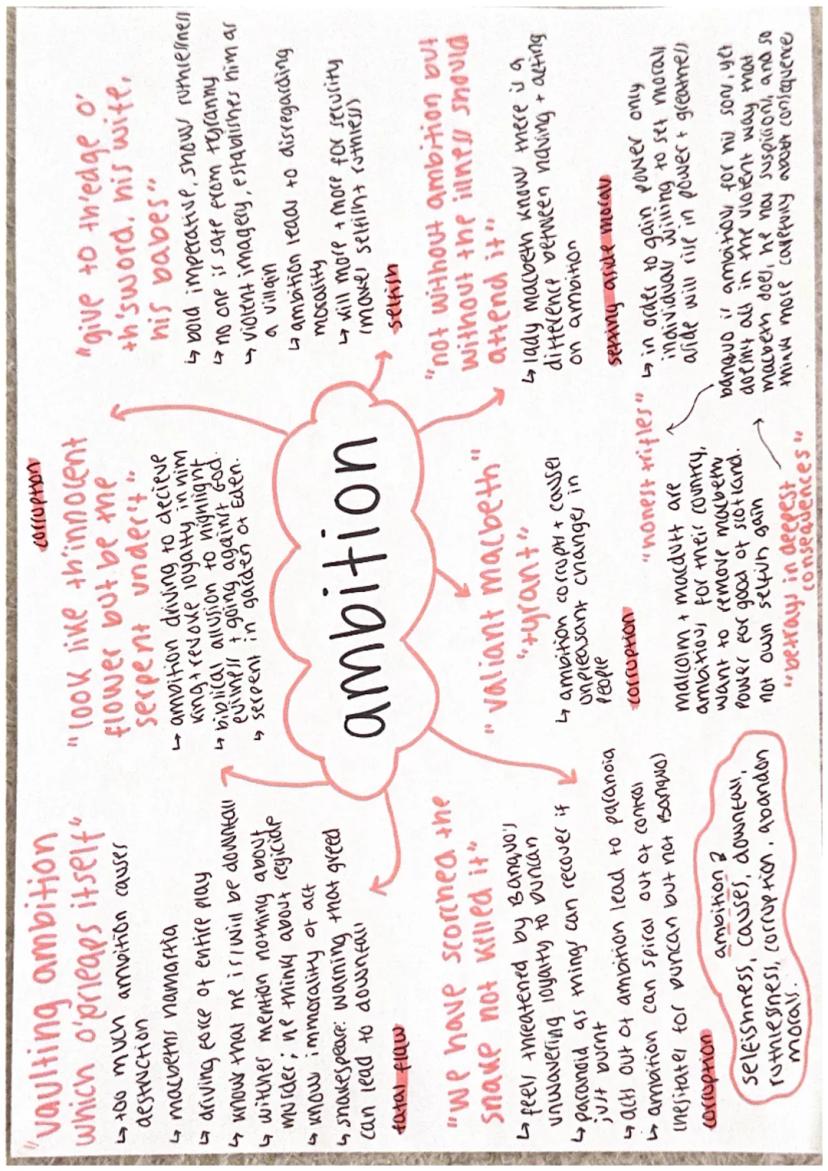 "vaulting ambition
which o'prleaps itself"
↳ too much ambition causes
destruction
↳ macbeths hamartia
↳ driving force of entire play
↳ know that he is/will be downfall
↳ witches mention nothing about
murder; he thinks about regicide
↳ know immorality of act
↳ shakespeare: warning that greed
can lead to downfall
fatal flaw
"look like th'innocent
flower but be the
serpent under't"
corruption
↳ ambition driving to decieve
king + revoke loyalty in him
↳ biblical allusion to highlight
evilness + going against God.
↳ serpent in garden of Eden.
"give to th'edge o'
th'sword. his wife,
his babes"
↳ bold imperative, shows ruthlessness
↳ no one is safe from tyranny
↳ violent imagery, establishes him as
a villain
↳ ambition leads to disregarding
morality
↳ kill more + more for security
(makes selfish + ruthless)
selfish
ambition
"we have scorched the
snake not killed it"
↳ feels threatened by Banquo's
unwavering loyalty to Duncan
↳ paranoid as things can recover if
just burnt
↳ acts out of ambition lead to paranoia
↳ ambition can spiral out of control
(hesitates for Duncan but not Banquo)
corruption
ambition?
selfishness, causes, downfall,
ruthlessness, corruption, abandon
morals.
"valiant macbeth"
"tyrant"
↳ ambition corrupts + causes
unpleasant changes in
people
corruption
malcolm + macduff are
ambitious for their country,
want to remove macbeth
power for good of scotland.
not own selfish gain
"honest trifles"
"betrays in deepest
consequences"
"not without ambition but
without the illness should
attend it"
↳ lady macbeth knows there is a
difference between having + acting
on ambition
setting aside morals
↳ in order to gain power only
individuals willing to set morals
aside will rise in power + greatness
banquo is ambitious for his sons, yet
doesn't act in the violent way that
macbeth does, he has suspicions, and so
think more carefully about consequence